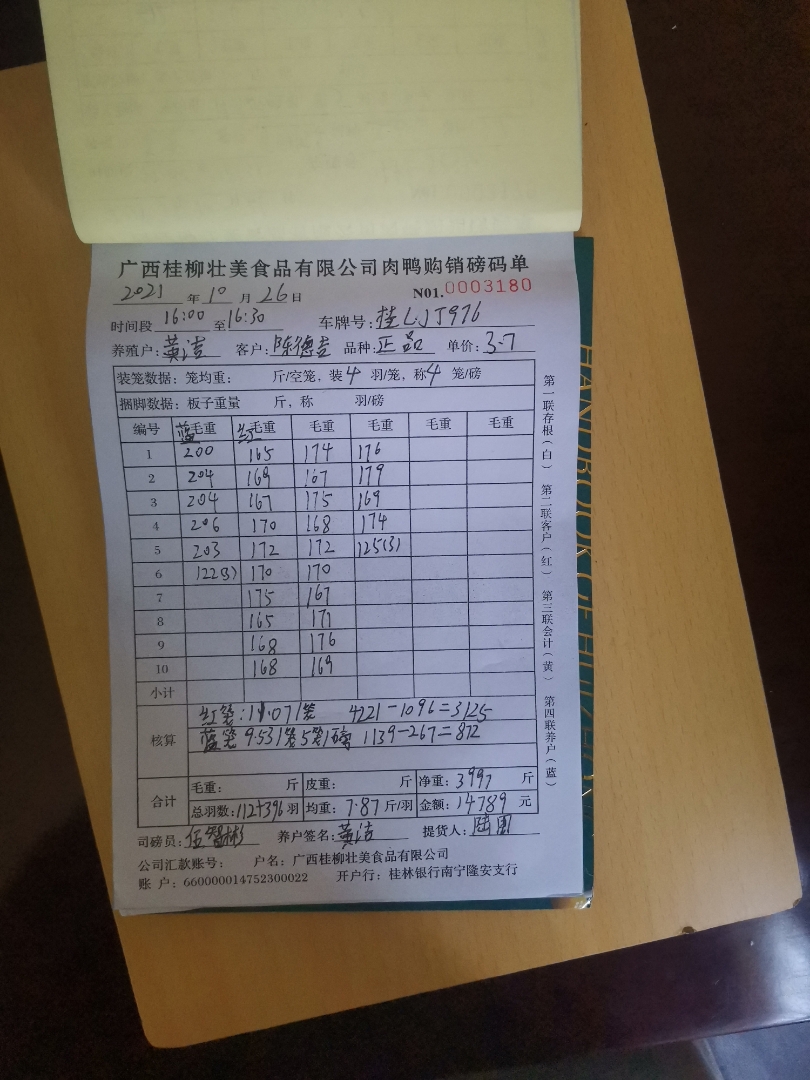 广西桂柳壮美食品有限公司肉鸭购销磅码单
2021 年 10 月 26 日 N01.0003180
时间段 16:00 至 16:30 车牌号: 桂L·JJ976
养殖户: 黄洁 客户: 陈德吉 品种: 正品 单价: 3.7
装笼数据: 笼均重: 斤/空笼, 装 4 羽/笼, 称 4 笼/磅
捆脚数据: 板子重量 斤, 称 羽/磅
编号 蓝毛重 红毛重 毛重 毛重 毛重 毛重
1 200 165 174 176
2 204 169 167 179
3 204 167 175 169
4 206 170 168 174
5 203 172 172 125(3)
6 122(3) 170 170
7 175 167
8 165 171
9 168 176
10 168 169
小计
核算
红笼: 11.071笼 4221-1096=3125
蓝笼 9.531笼5笼1磅 1139-267=872
合计 毛重: 斤 皮重: 斤 净重: 3997 斤
总羽数: 112+396 羽 均重: 7.87 斤/羽 金额: 14789 元
司磅员: 伍智彬 养户签名: 黄洁 提货人:
公司汇款账号: 户名: 广西桂柳壮美食品有限公司
账 户: 660000014752300022 开户行: 桂林银行南宁隆安支行
第一联存根(白) 第二联客户(红) 第三联会计(黄) 第四联养户(蓝)
HANDBOOK OF